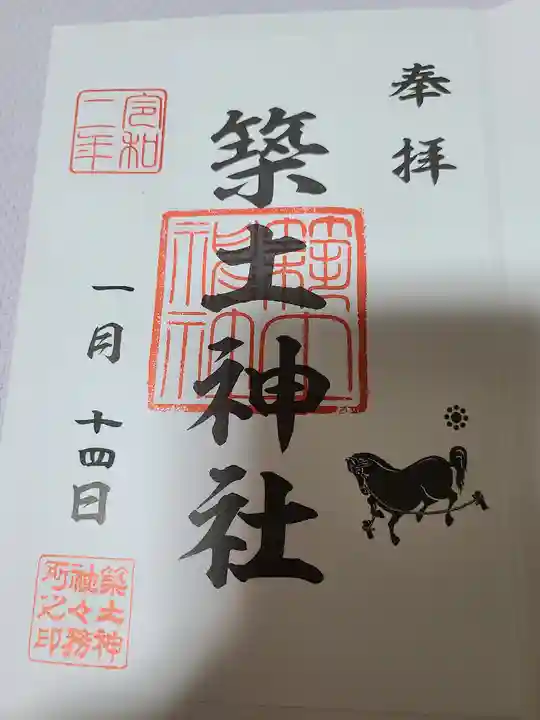 奉拝
築土神社
築土神社
令和二年
一月十四日
築土神社々務所之印